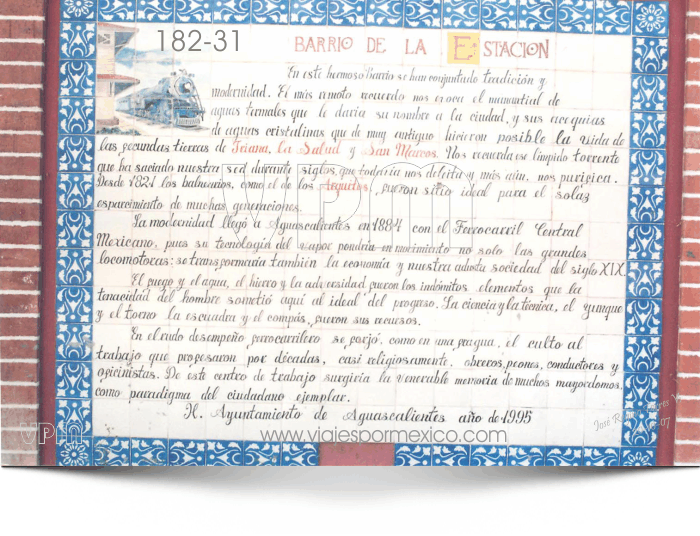 182-31
BARRIO DE LA ESTACION
En este hermoso Barrio se han conjuntado tradición y
modernidad. El más remoto recuerdo nos evoca el manantial de
aguas termales que le daría su nombre a la ciudad, y sus acequias
de aguas cristalinas que de muy antiguo hicieron posible la vida de
las fecundas tierras de Triana, La Salud y San Marcos. Nos recuerda ese límpido torrente
que ha saciado nuestra sed durante siglos, que todavía nos deleita y más aún, nos purifica.
Desde 1821 los balnearios, como el de los Arquitos, fueron sitio ideal para el solaz
esparcimiento de muchas generaciones.
La modernidad llegó a Aguascalientes en 1884 con el Ferrocarril Central
Mexicano, pues su tecnología del vapor pondría en movimiento no solo las grandes
locomotoras: se transformaría también la economía y nuestra adusta sociedad del siglo XIX.
El fuego y el agua, el hierro y la adversidad fueron los indómitos elementos que la
tenacidad del hombre sometió aquí al ideal del progreso. La ciencia y la técnica, el yunque
y el torno la escuadra y el compás, fueron sus recursos.
En el rudo desempeño ferrocarrilero se forjó, como en una fragua, el culto al
trabajo que profesaron por décadas, casi religiosamente, obreros, peones, conductores y
oficinistas. De este centro de trabajo surgiría la venerable memoria de muchos mayordomos,
como paradigma del ciudadano ejemplar.
H. Ayuntamiento de Aguascalientes año de 1995
VPM
www.viajespormexico.com